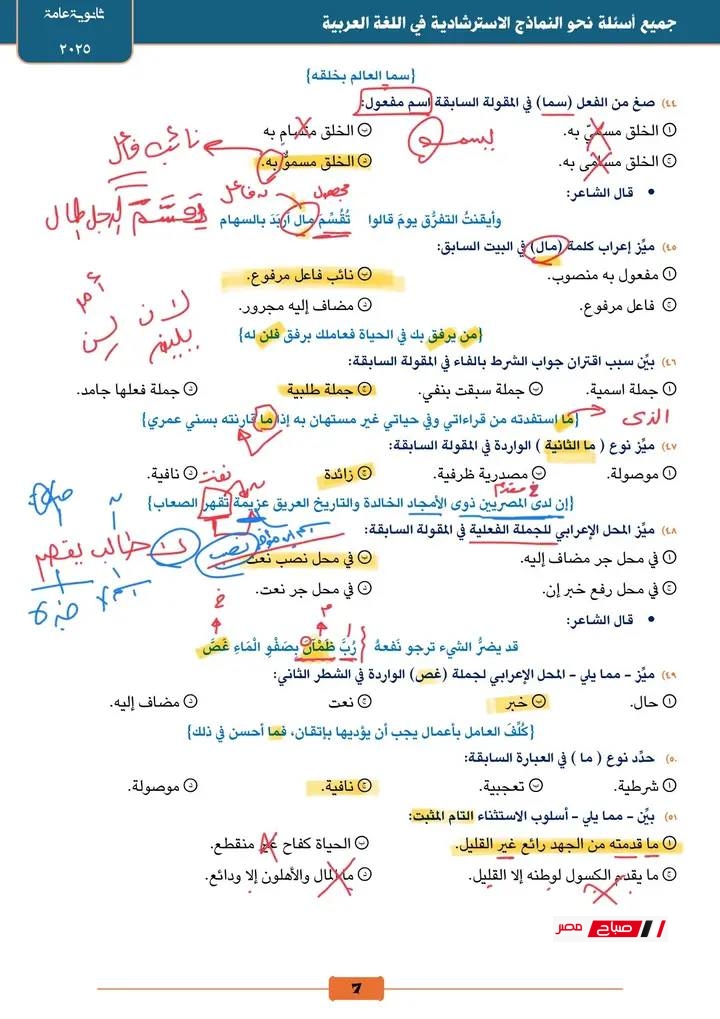 جميع أسئلة نحو النماذج الاسترشادية في اللغة العربية
ثانوية عامة
٢٠٢٥
{سما العالم بخلقه}
(٤٤ صغ من الفعل (سما) في المقولة السابقة اسم مفعول:
أ الخلق مسميّ به. ب الخلق متسامٍ به
ج الخلق مسامى به. د الخلق مسموٌّ به.
نائب فاعل
• قال الشاعر:
مجهول
وأيقنتُ التفرُّق يومَ قالوا تُقُسِّمَ مال أربَدَ بالسهام
(٤٥ ميّز إعراب كلمة (مال) في البيت السابق:
أ مفعول به منصوب. ب نائب فاعل مرفوع.
ج فاعل مرفوع. د مضاف إليه مجرور.
أمر
{من يرفق بك في الحياة فعاملك برفق فلن له}
(٤٦ بيّن سبب اقتران جواب الشرط بالفاء في المقولة السابقة:
أ جملة اسمية. ب جملة سبقت بنفي. ج جملة طلبية د جملة فعلها جامد.
الذى
{ما استفدته من قراءاتي وفي حياتي غير مستهان به إذا ما قارنته بسني عمري}
(٤٧ ميّز نوع ( ما الثانية ) الواردة في المقولة السابقة:
أ موصولة. ب مصدرية ظرفية. ج زائدة د نافية.
نعت
{إن لدى المصريين ذوى الأمجاد الخالدة والتاريخ العريق عزيمة تقهر الصعاب}
(٤٨ ميّز المحل الإعرابي للجملة الفعلية في المقولة السابقة:
نصب
أ في محل جر مضاف إليه. ب في محل نصب نعت
ج في محل رفع خبر إن. د في محل جر نعت.
• قال الشاعر:
قد يضرُّ الشيء ترجو نَفعهُ رُبَّ ظَمْآن بِصَفْوِ الْمَاءِ غَصَّ
(٤٩ ميّز - مما يلي - المحل الإعرابي لجملة (غص) الواردة في الشطر الثاني:
أ حال. ب خبر ج نعت د مضاف إليه.
{كُلِّفَ العامل بأعمال يجب أن يؤديها بإتقان، فما أحسن في ذلك}
(٥٠ حدِّد نوع ( ما ) في العبارة السابقة:
أ شرطية. ب تعجبية. ج نافية. د موصولة.
(٥١ بيّن - مما يلي - أسلوب الاستثناء التام المثبت:
أ ما قدمته من الجهد رائع غير القليل. ب الحياة كفاح غير منقطع.
ج ما يقدم الكسول لوطنه إلا القليل. د ما المال والأهلون إلا ودائع.
صباح مصر
7